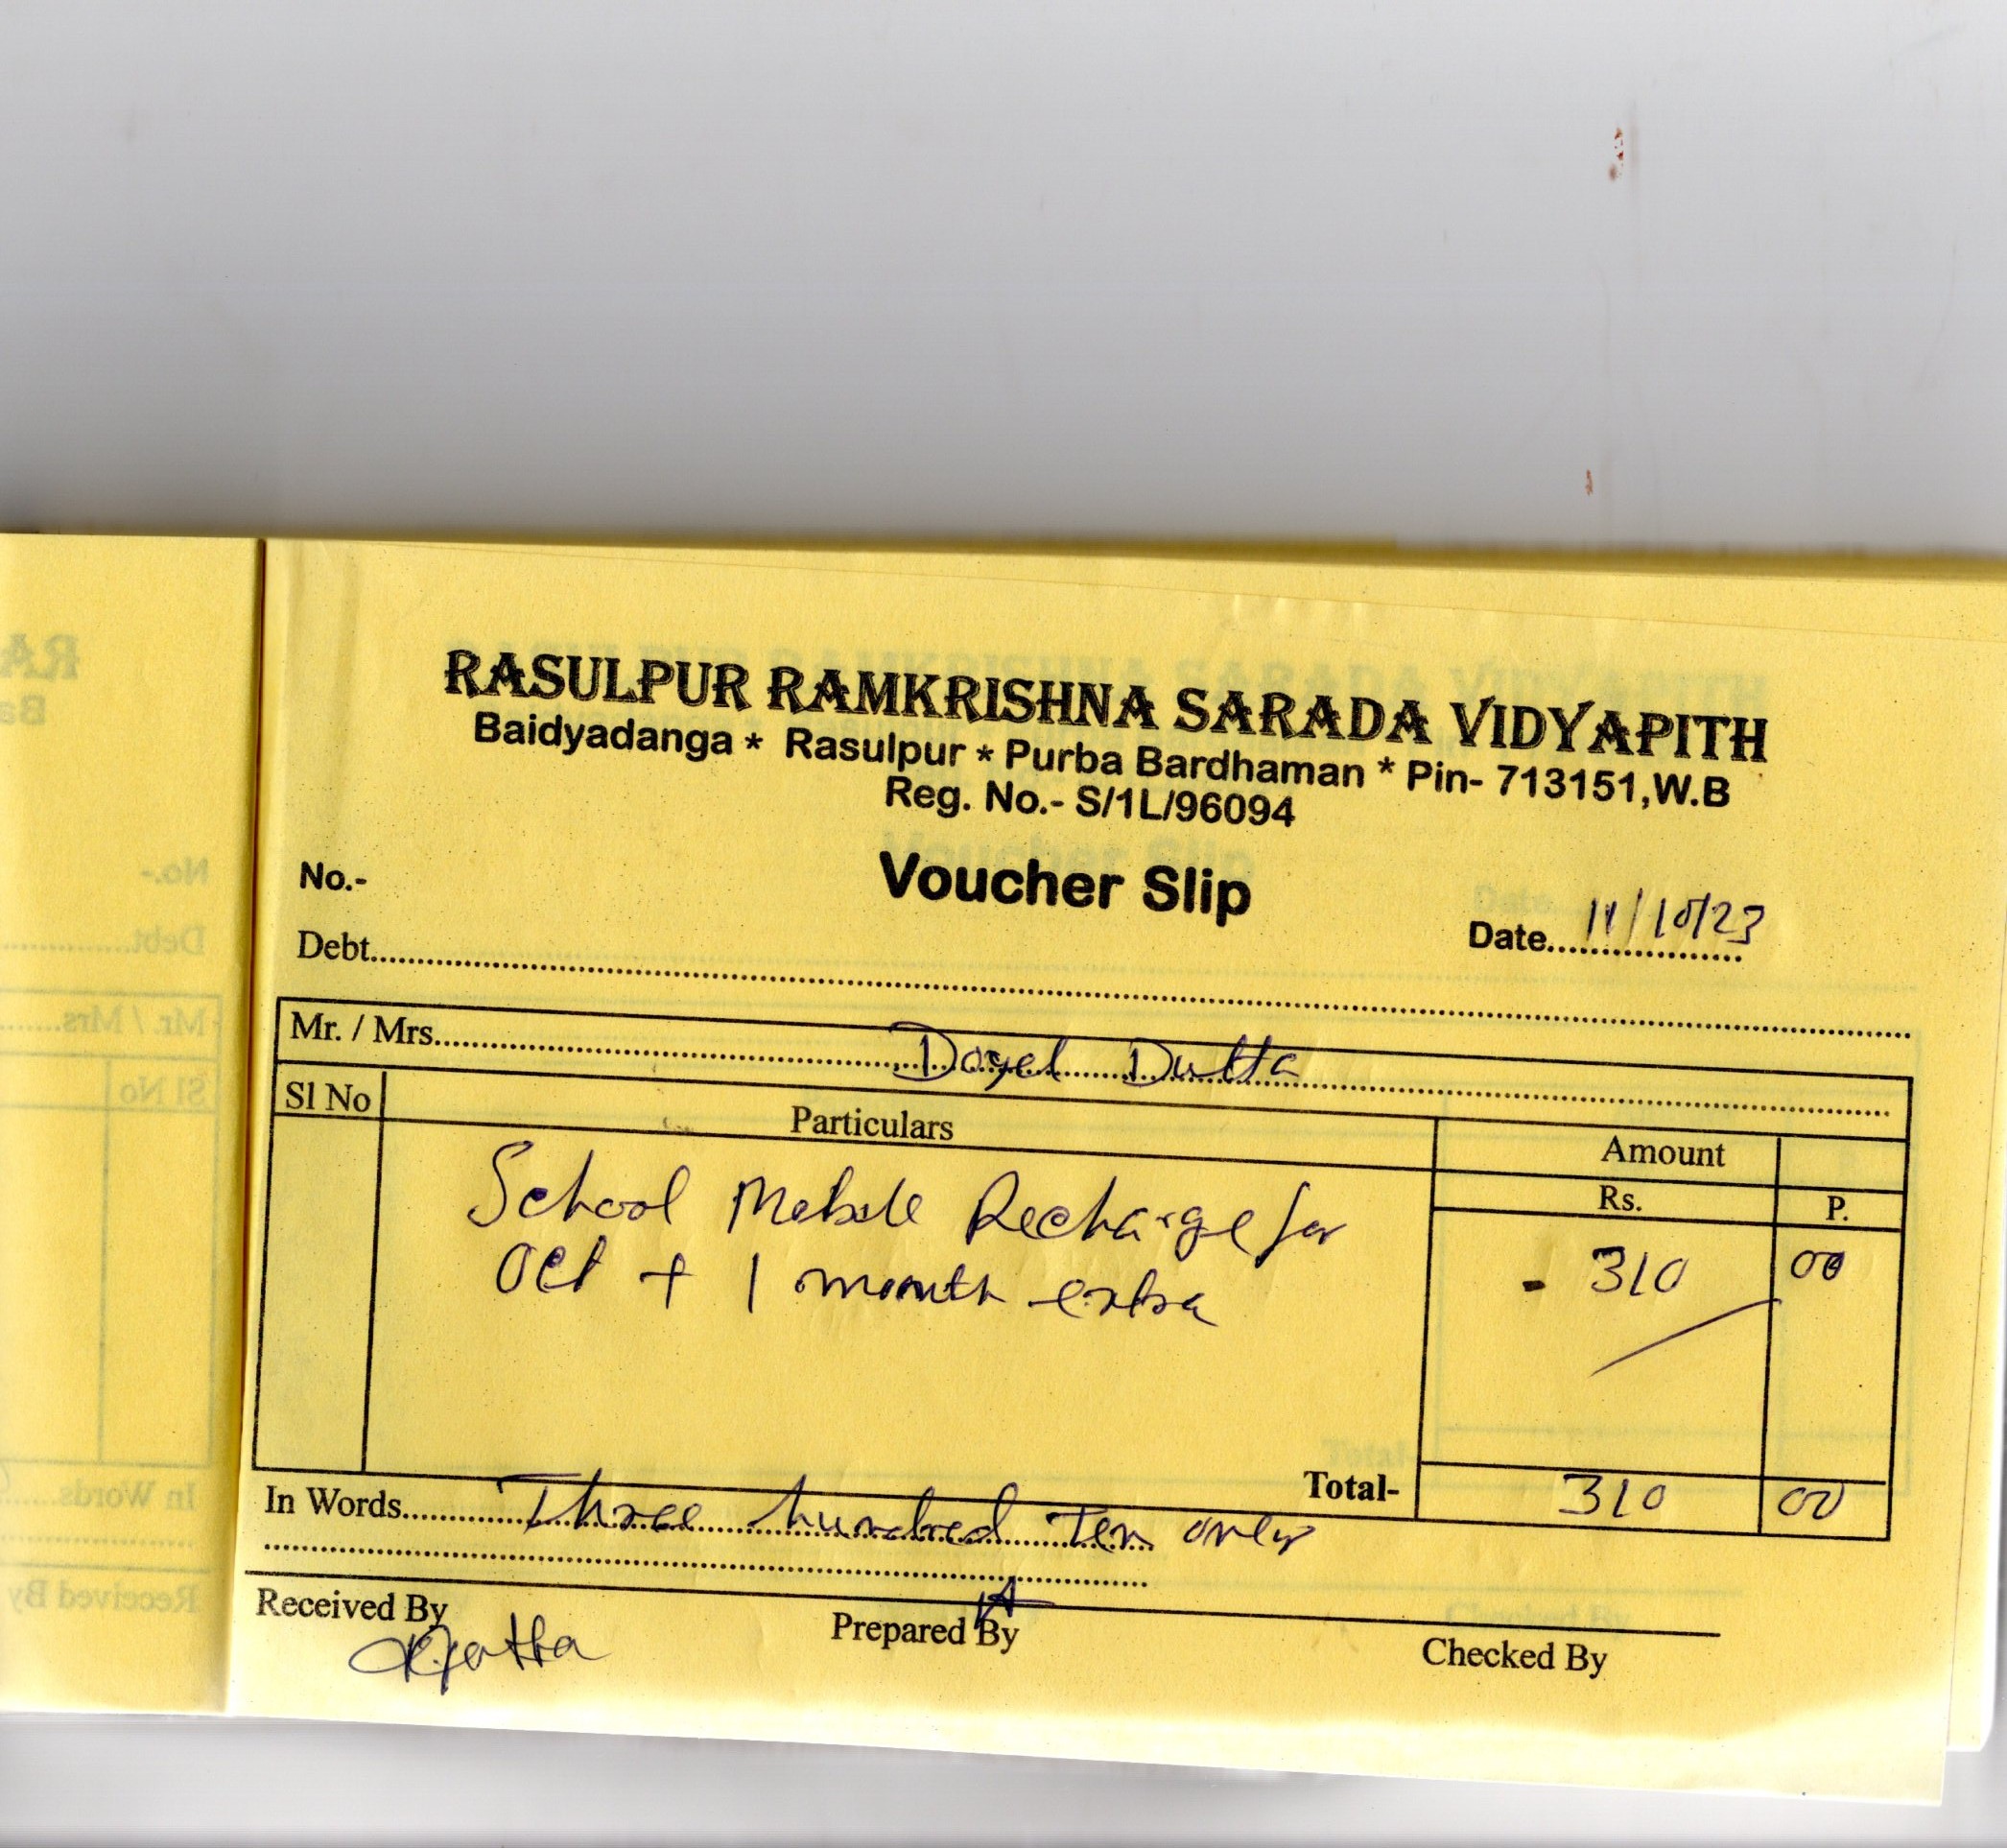 RASULPUR RAMKRISHNA SARADA VIDYAPITH
Baidyadanga * Rasulpur * Purba Bardhaman * Pin- 713151,W.B
Reg. No.- S/1L/96094
Voucher Slip
No.-
Date 11/10/23
Debt
Mr. / Mrs. Doyel Dutta
Sl No Particulars Amount
Rs. P.
School Mobile Recharge for
Oct + 1 month extra - 310 00
Total- 310 00
In Words Three hundred Ten only
Received By Prepared By Checked By